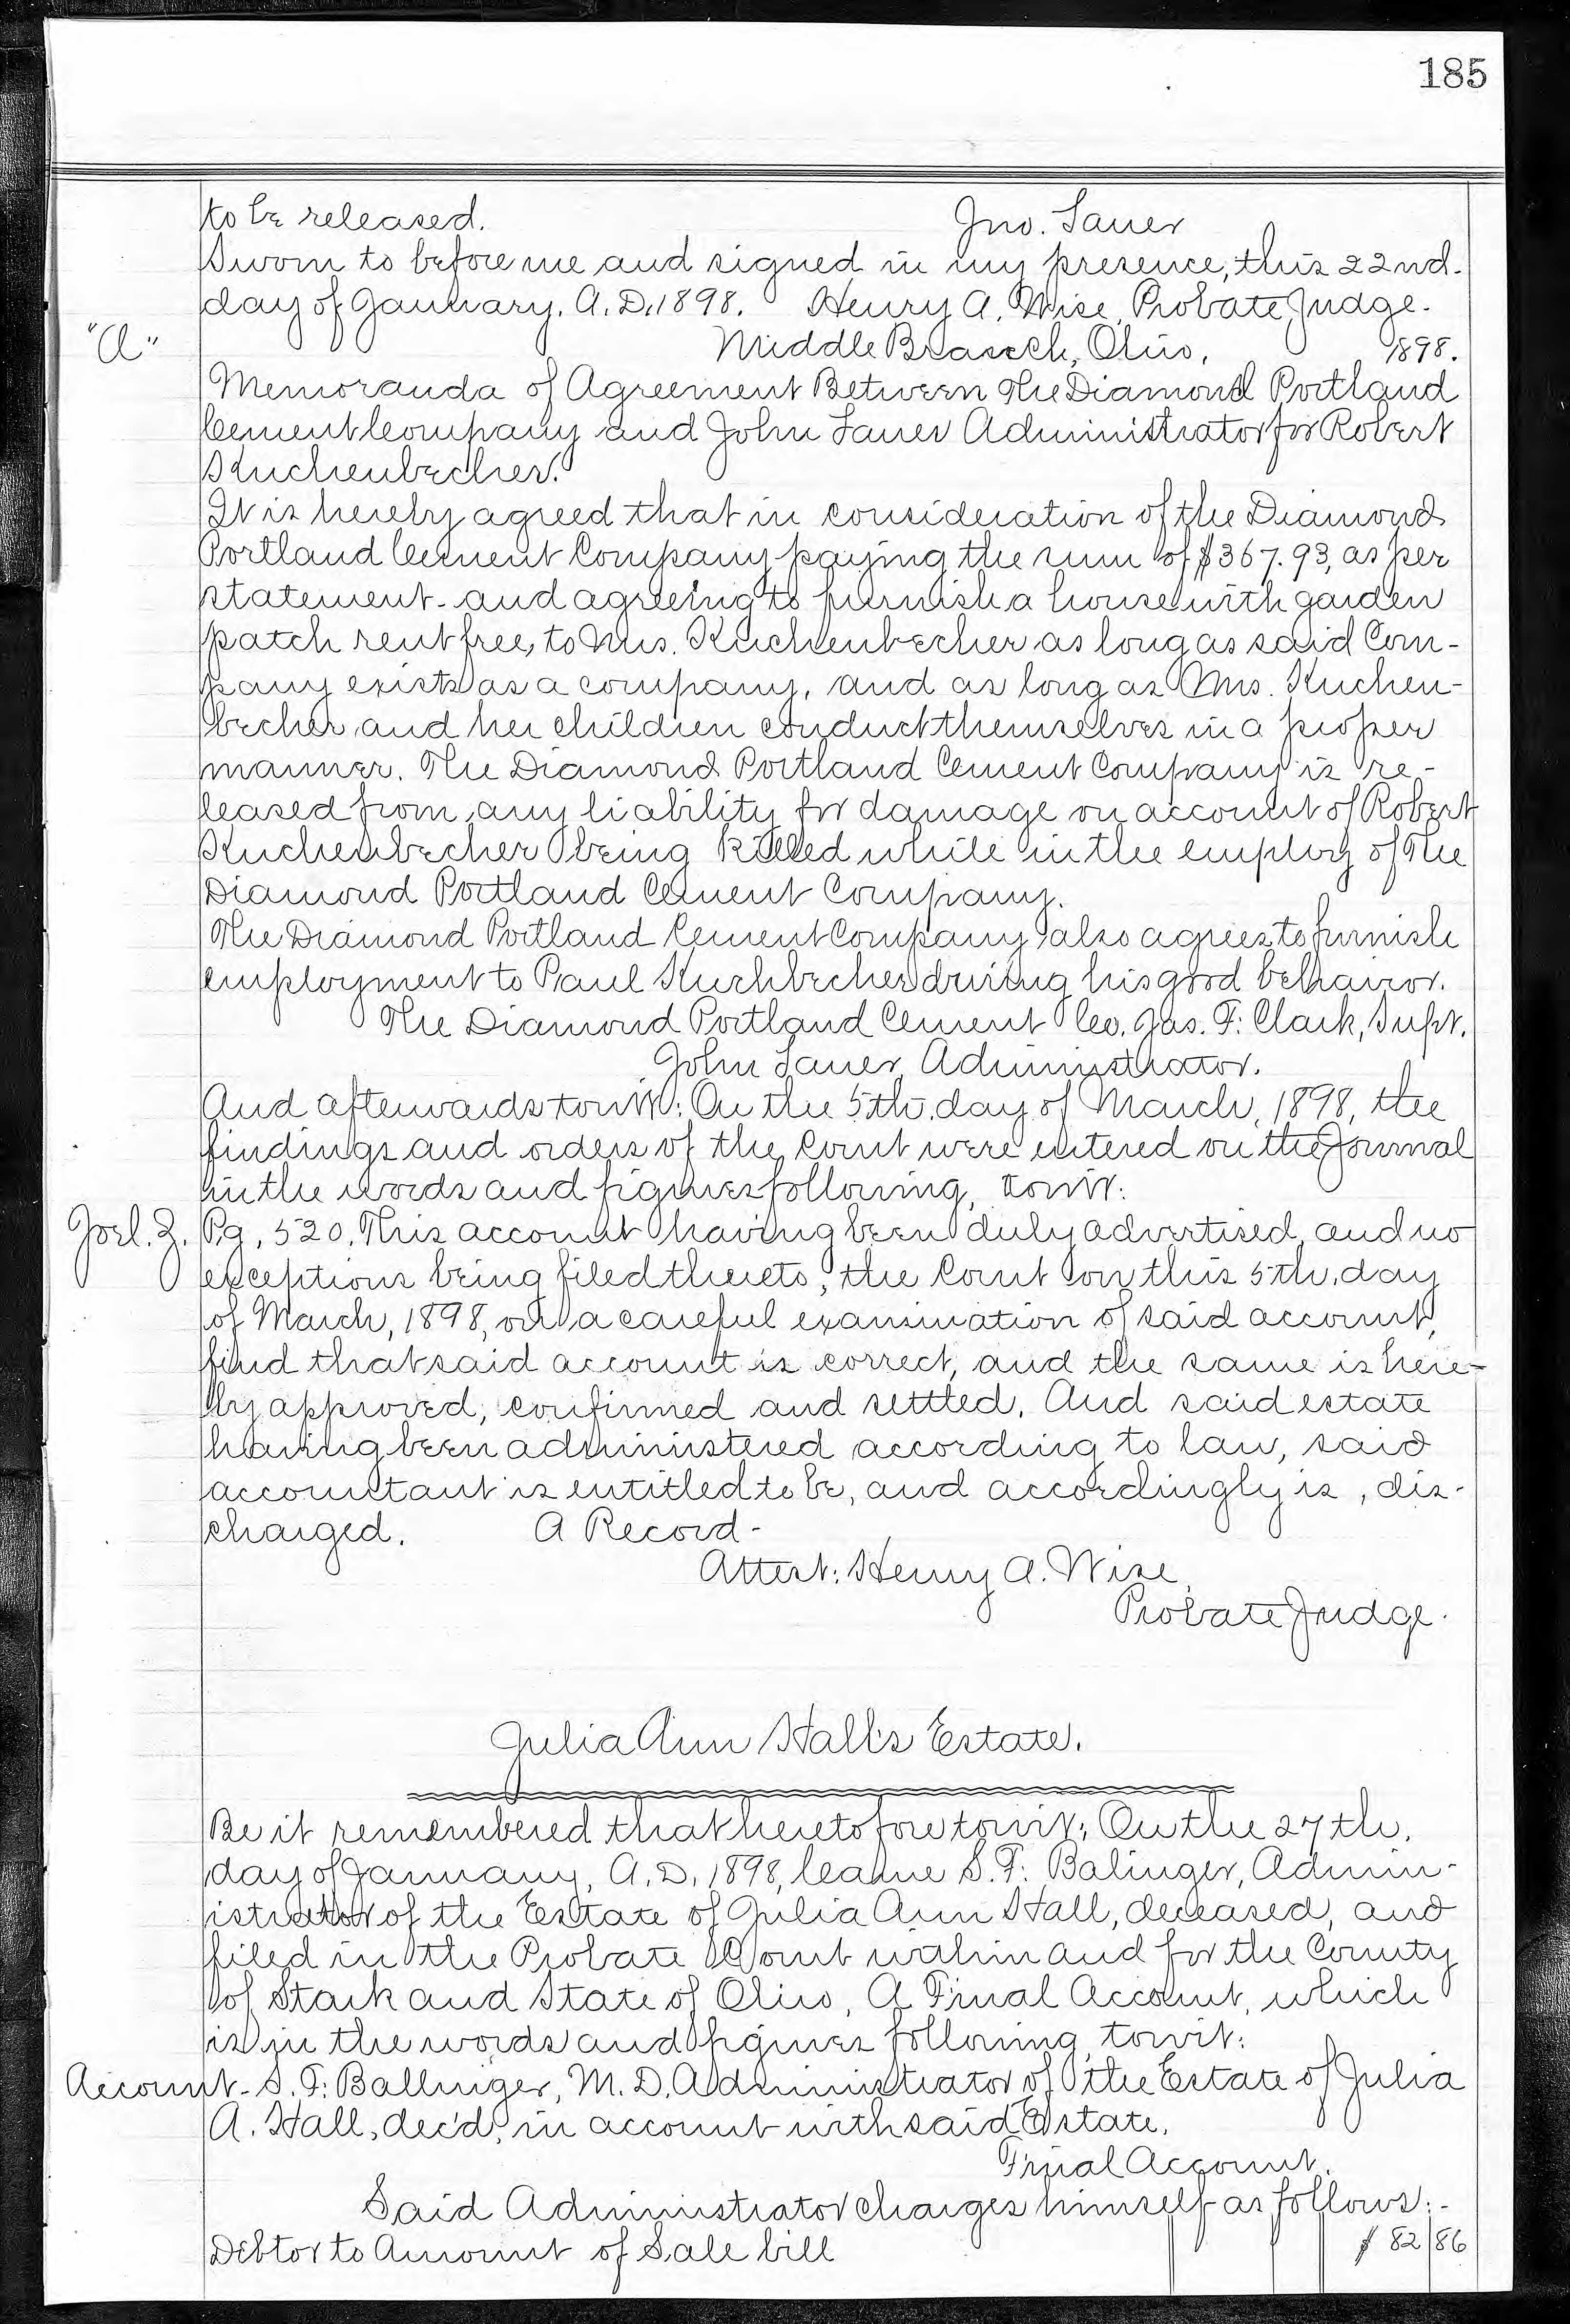 185
to be released. Jno. Sauer
Sworn to before me and signed in my presence, this 22nd.
day of January, A.D. 1898. Henry A. Wise, Probate Judge.
"A" Middle Branch, Ohio, 1898.
Memoranda of Agreement Between The Diamond Portland
Cement Company and John Sauer Administrator for Robert
Kuchenbecher.
It is hereby agreed that in consideration of the Diamond
Portland Cement Company paying the sum of $367.93, as per
statement - and agreeing to furnish a house with garden
patch rent free, to Mrs. Kuchenbecher as long as said Com-
pany exists as a company, and as long as Mrs. Kuchen-
becher and her children conduct themselves in a proper
manner. The Diamond Portland Cement Company is re-
leased from any liability for damage on account of Robert
Kuchenbecher being killed while in the employ of The
Diamond Portland Cement Company.
The Diamond Portland Cement Company also agrees to furnish
employment to Paul Kuchbecher during his good behavior.
The Diamond Portland Cement Co. Jas. F. Clark, Supt.
John Sauer, Administrator.
And afterwards towit: On the 5th. day of March, 1898, the
findings and orders of the Court were entered on the Journal
in the words and figures following, towit:
Jorl. Z. Pg, 520. This account having been duly advertised, and no
exceptions being filed thereto, the Court on this 5th. day
of March, 1898, on a careful examination of said account,
find that said account is correct, and the same is here-
by approved, confirmed and settled. And said estate
having been administered according to law, said
accountant is entitled to be, and accordingly is, dis-
charged. A Record -
Attest: Henry A. Wise,
Probate Judge.
Julia Ann Hall's Estate.
Be it remembered that heretofore towit; On the 27th.
day of January, A.D. 1898, Came S.F. Balinger, Admin-
istrator of the Estate of Julia Ann Hall, deceased, and
filed in the Probate Court within and for the County
of Stark and State of Ohio, A Final Account, which
is in the words and figures following, towit:
Account - S.F. Ballinger, M.D. Administrator of the Estate of Julia
A. Hall, dec'd, in account with said Estate.
Final Account.
Said Administrator charges himself as follows:-
Debtor to Amount of Sale bill $ 82 86